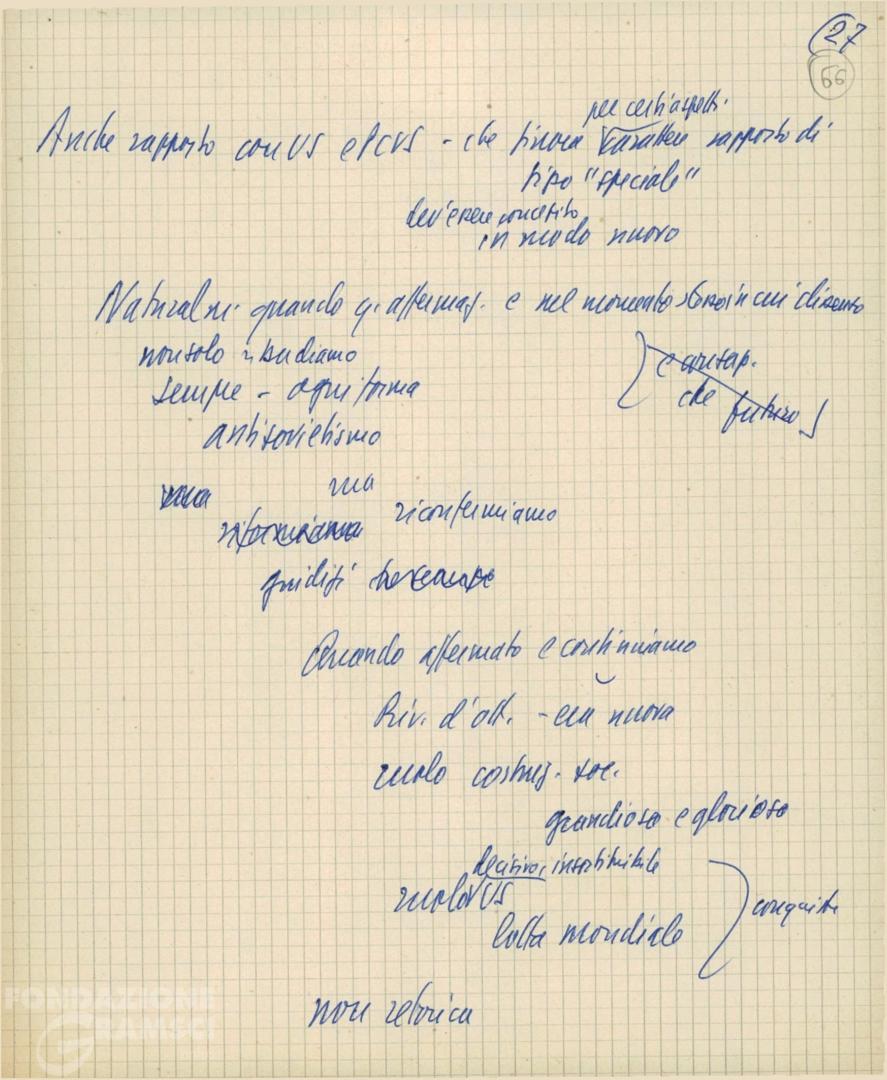 27
66
per certi aspetti
Anche rapporto con US e PCUS - che finora carattere rapporto di
tipo "speciale"
dev'essere concepito
in modo nuovo
Naturalm. quando q. affermaz. e nel momento stesso in cui dissenso
non solo ribadiamo
sempre - ogni forma
antisovietismo
e consap.
che futuro
ma
ma
riformiamo riconfermiamo
giudizi
Quando affermato e continuiamo
Riv. d'ott. - era nuova
ruolo costruz. soc.
grandioso e glorioso
decisivo, insostituibile
ruolo US
lotta mondiale
conquiste
non retorica
FONDAZIONE
GRAMSCI